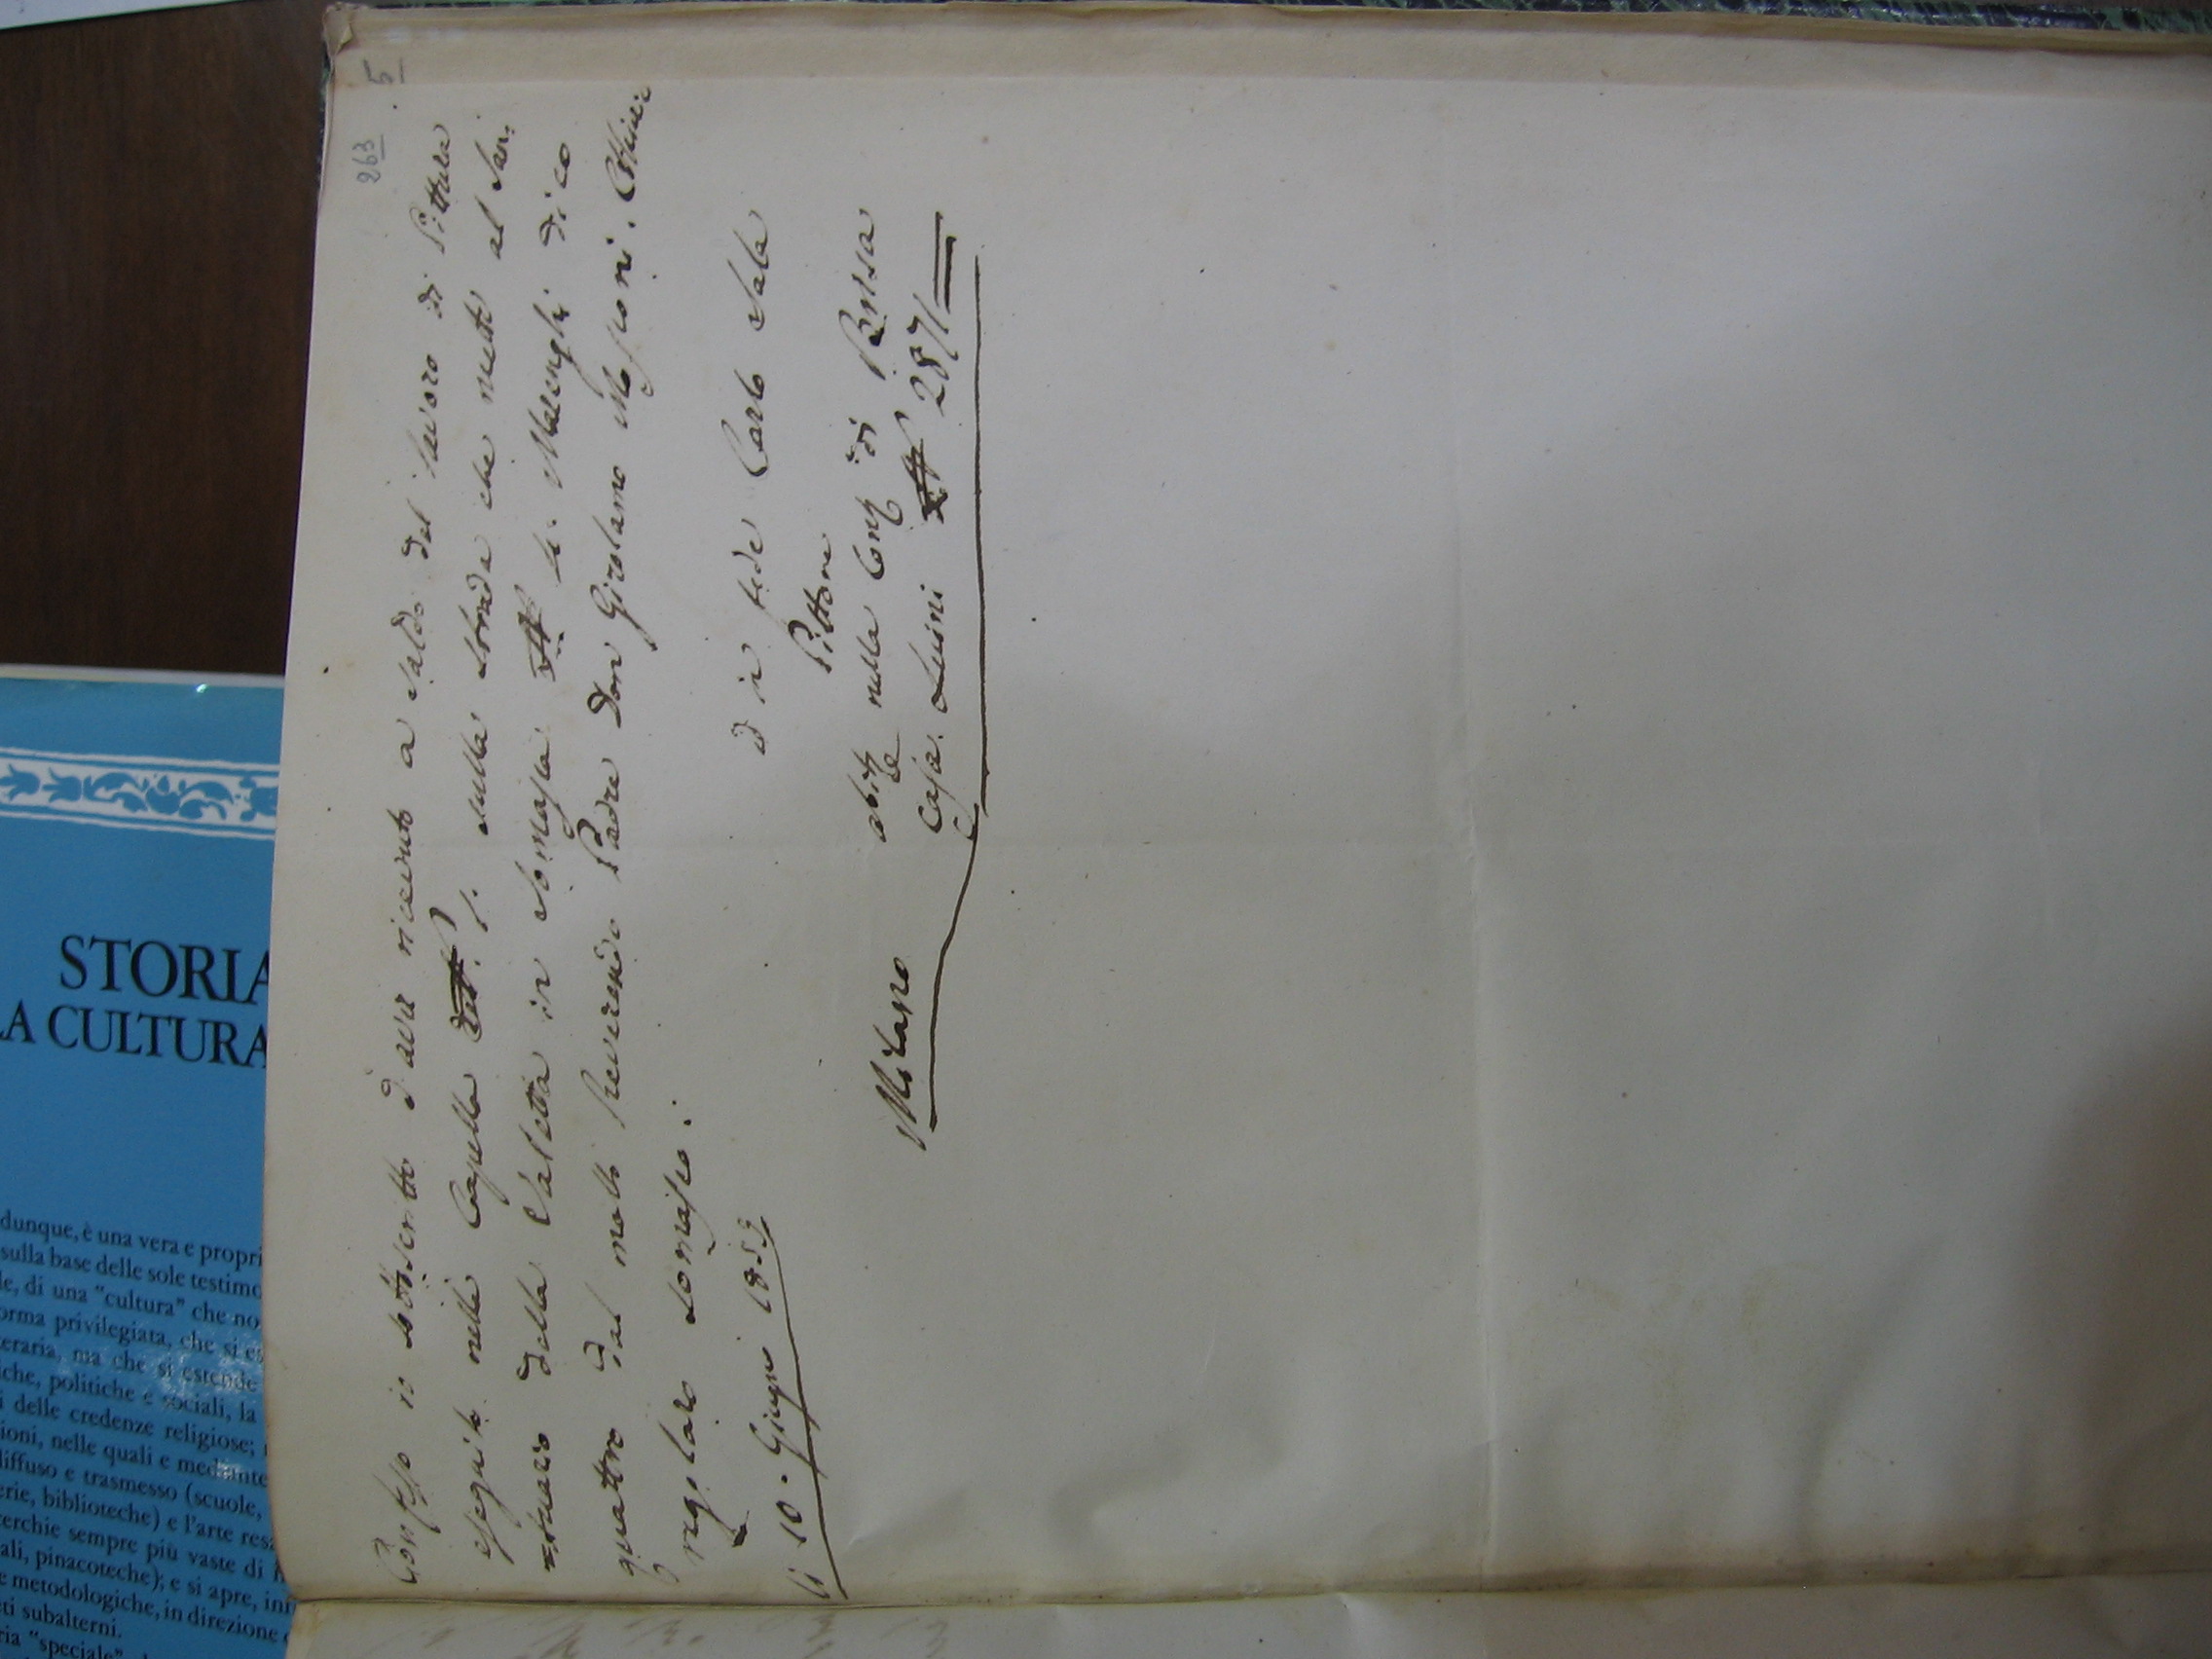 263 5
Confesso io sottoscritto d'aver ricevuto a saldo del lavoro di Pittura
eseguito nelle Capelle sulla strada che mette al San:
=tuario della Valletta in Somasca N. 4. Marenghi dico
quattro dal molto Reverendo Padre Don Girolamo
regolare Somasco:
li 10. Giugno 1859
in fede Carlo Sala
Pittore
nella di Bossa
Casa Luini N 2871
Milano
STORIA
LA CULTURA
dunque, è una vera e propri
sulla base delle sole testimo
le, di una "cultura" che no
orma privilegiata, che si es
eraria, ma che si estende
iche, politiche e sociali, la
i delle credenze religiose;
ioni, nelle quali e mediante
diffuso e trasmesso (scuole,
erie, biblioteche) e l'arte res
erchie sempre più vaste di
ali, pinacoteche); e si apre, inn
e metodologiche, in direzione
eti subalterni.
ria "speciale"